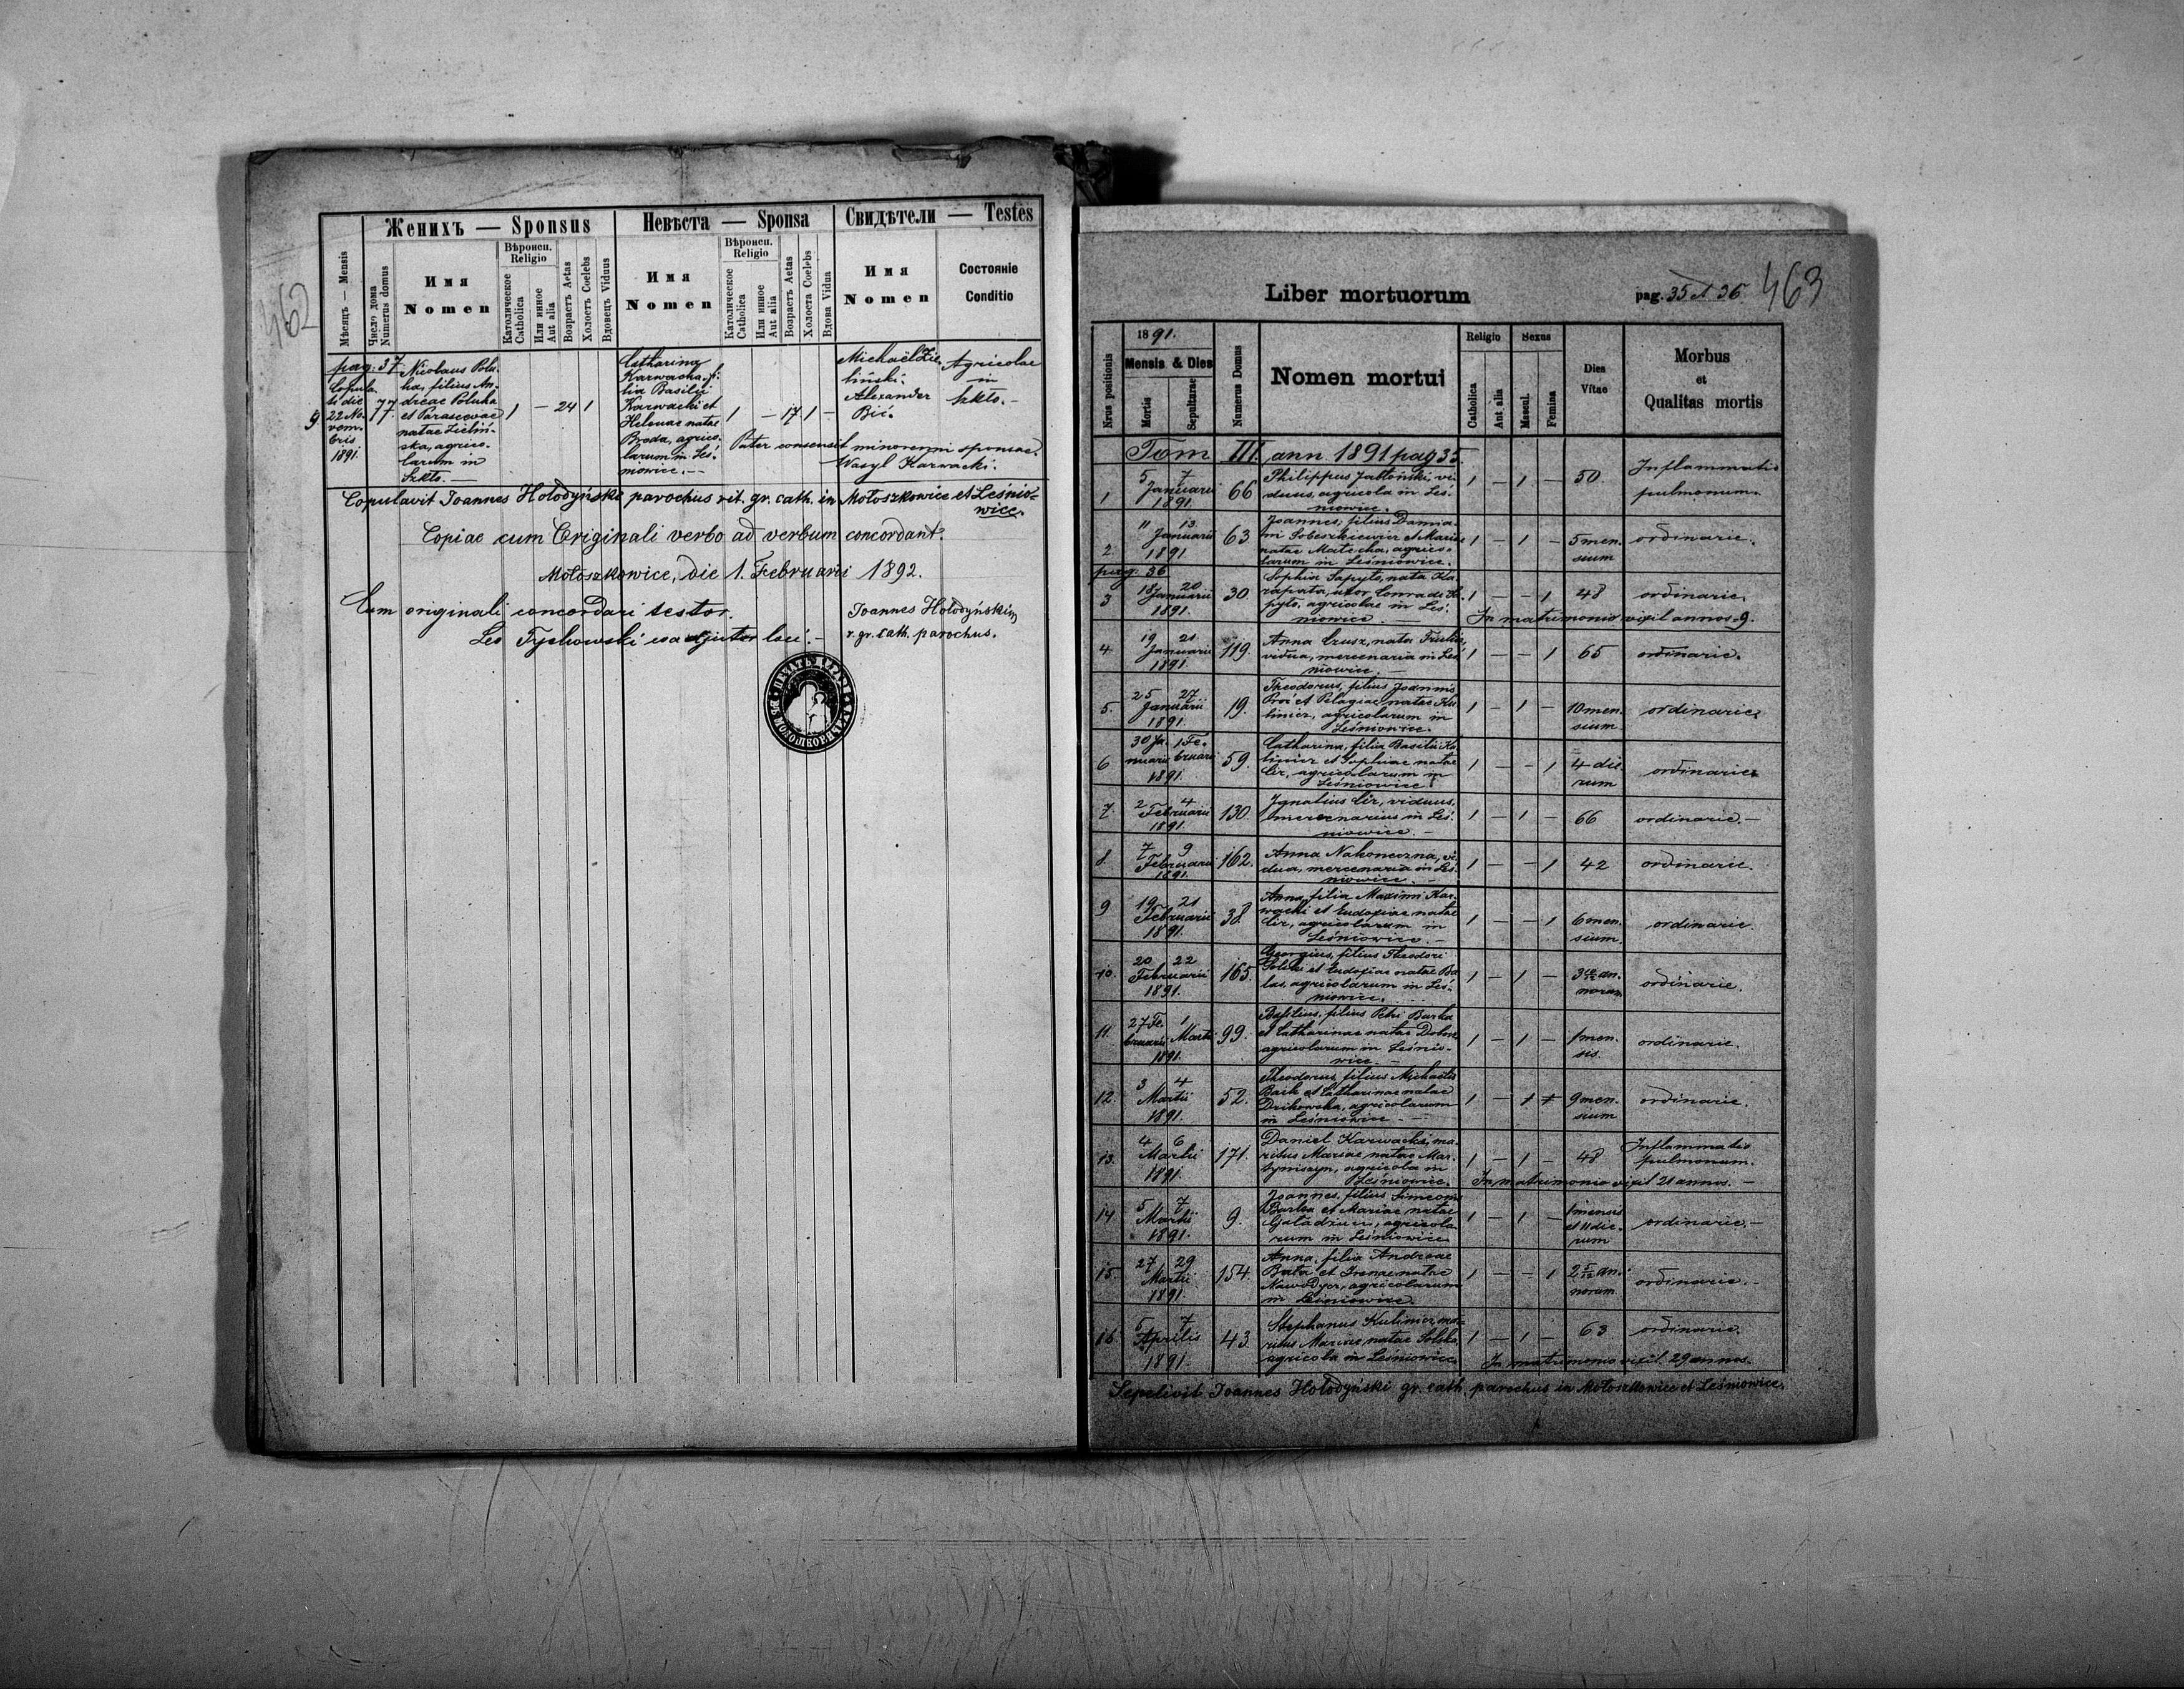 462
Женихъ — Sponsus
Невѣста — Sponsa
Свидѣтели — Testes
Мѣсяцъ — Mensis
Число дома
Numerus domus
Имя
Nomen
Вѣроисп.
Religio
Католическое
Catholica
Или инное
Aut alia
Возрастъ Aetas
Холостъ Coelebs
Вдовецъ Viduus
Имя
Nomen
Вѣроисп.
Religio
Католическое
Catholica
Или инное
Aut alia
Возрастъ Aetas
Холоста Coelebs
Вдова Vidua
Имя
Nomen
Состояніе
Conditio
pag. 37
9.
Copula
ti die
22 No
vem
bris
1891.
77.
Nicolaus Polu
ha, filius An
dreae Poluha
et Parascevae
natae Zieliń-
ska, agrico
larum in
Szkło. —
1 — 24 1
Catharina
Karwacka, fi
lia Basilii
Karwacki et
Helenae natae
Broda, agrico
larum in Leś
niowice. —
1 — 17 1 —
Michaël Zie
liński.
Alexander
Bić.
Agricolae
in
Szkło. —
Pater consensit minorenni sponsae.
Wasyl Karwacki.
Copulavit Joannes Hołodyński parochus rit. gr. cath. in Mołoszkowice et Leśnio-
wice.
Copiae cum Originali verbo ad verbum concordant.
Mołoszkowice, die 1. Februarii 1892.
Cum originali concordari testor.
Joannes Hołodyński
r. gr. cath. parochus.
Leo coadjutor loci. —
Liber mortuorum
pag. 35 et 36.
463
Nrus positionis
1891.
Mensis & Dies
Mortis
Sepulturae
Numerus Domus
Nomen mortui
Religio
Catholica
Aut alia
Sexus
Mascul.
Femina
Dies
Vitae
Morbus
et
Qualitas mortis
Tom III. ann. 1891 pag 35.
1 5 7
Januarii
1891.
66
Philippus Jabłoński, vi
duus, agricola in Leś
niowice.
1 — 1 — 50
Inflammatio
pulmonum.
2. 11 13
Januarii
1891
63
Joannes, filius Damia
ni Sobeszkiewicz et Mariae
natae Matecha, agrico
larum in Leśniowice.
1 — 1 — 5 men
sium
ordinarie.
pag. 36
3 18 20
Januarii
1891.
30.
Sophia Sapyto, nata Ka
rapata, uxor Conradi Sa
pyto, agricolae in Leś
niowice. —
1 — — 1 48 ordinarie.
In matrimonio vixit annos 9.
4 19 21
Januarii
1891.
119.
Anna Crusz, nata
vidua, mercenaria in Leś
niowice.
1 — — 1 65 ordinarie.
5. 25 27
Januarii
1891.
19.
Theodorus, filius Joannis
Proć et Pelagiae natae Ku
linicz, agricolarum in
Leśniowice.
1 — 1 — 10 men
sium
ordinarie.
6 30 Ja 1 Fe
nuarii bruarii
1891.
59.
Catharina, filia Basilii Ku
linicz et Sophiae natae
Cir, agricolarum in
Leśniowice.
1 — — 1 4 die
rum
ordinarie.
7. 2 4
Februarii
1891.
130.
Ignatius Cir, viduus,
mercenarius in Leś
niowice. —
1 — 1 — 66 ordinarie. —
8. 7 9
Februarii
1891.
162.
Anna Nakoneczna, vi
dua, mercenaria in Leś
niowice. —
1 — — 1 42 ordinarie.
9 19 21
Februarii
1891.
38.
Anna, filia Maximi Kar
wacki et Eudoxiae natae
Cir, agricolarum in
Leśniowice. —
1 — — 1 6 men
sium
ordinarie.
10. 20 22
Februarii
1891.
165.
Georgius, filius Theodori
Solski et Eudoxiae natae Ba
las, agricolarum in Leś
niowice.
1 — 1 — 3 an
norum
ordinarie.
11. 27 Fe 1
bruarii Martii
1891.
99.
Basilius, filius Petri Burka
et Catharinae natae Dobosz
agricolarum in Leśnio
wice. —
1 — 1 — 1 men
sis.
ordinarie.
12. 3 4
Martii
1891.
52.
Theodorus, filius Michaelis
Baik et Catharinae natae
Dzikowska, agricolarum
in Leśniowice —
1 — 9 men
sium
ordinarie.
13. 4 6
Martii
1891.
171.
Daniel Karwacki, ma
ritus Mariae natae Mar
tyniszyn, agricola in
Leśniowice.
1 — 1 — 48
Inflammatio
pulmonum.
In matrimonio vixit 21 annos. —
14 5 7
Martii
1891.
9.
Joannes, filius Simeonis
Burka et Mariae natae
agricola
rum in Leśniowice
1 — 1 — 1 mensis
et 11 die
rum
ordinarie. —
15. 27 29
Martii
1891.
154.
Anna, filia Andreae
Bata et Irenae natae
agricolarum
in Leśniowice.
1 — — 1 2 5/12 an
norum
ordinarie. —
16. 5 7
Aprilis
1891.
43.
Stephanus Kulinicz, ma
ritus Mariae natae Solska
agricola in Leśniowice.
1 — 1 — 63 ordinarie.
In matrimonio vixit 29 annos.
Sepelivit Joannes Hołodyński gr. cath. parochus in Mołoszkowice et Leśniowice.